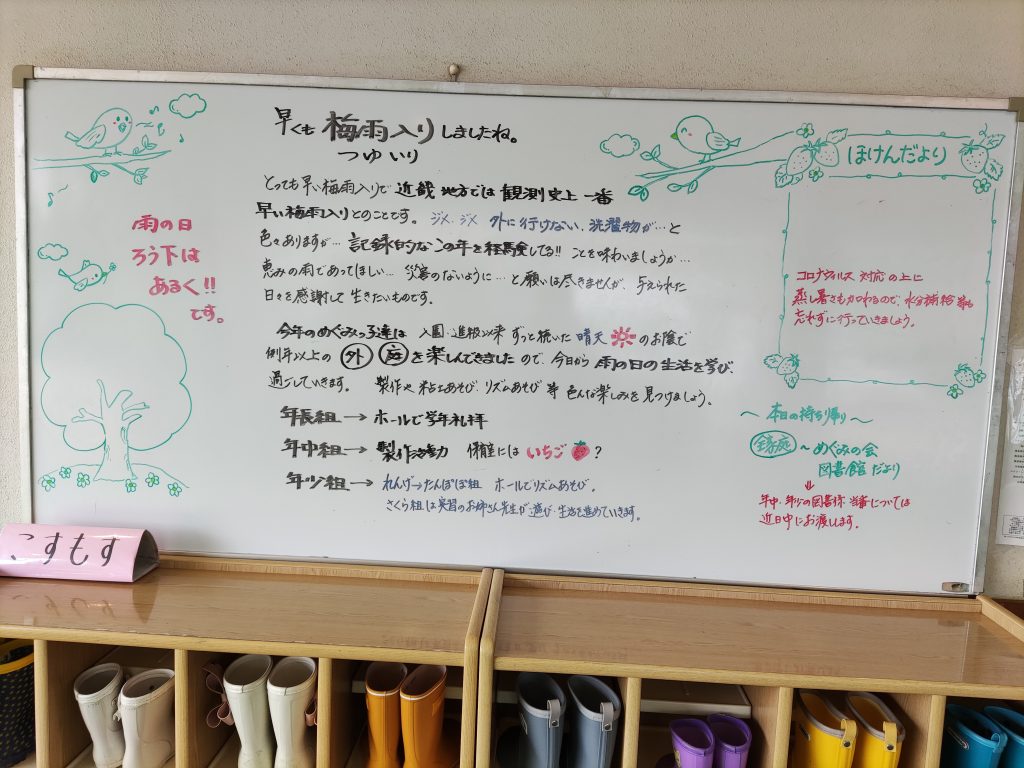 早くも 梅雨入り しましたね。
つゆ いり
とっても早い梅雨入りで 近畿 地方では 観測史上 一番
早い梅雨入りとのことです。 ジメ、ジメ 外に行けない、洗濯物が…と
色々ありますが… 記録的なこの年を経験してる!! ことを味わいましょうか…
恵みの雨であってほしい… 災害のないように… と願いは尽きませんが、与えられた
日々を感謝して 生きたいものです。
今年のめぐみっ子達は 入園・進級以来 ずっと続いた 晴天 のお陰で
例年以上の 外 庭 を楽しんできました ので、今日から 雨の日の生活を学び、
過ごしていきます。 製作や 粘土あそび、リズムあそび 等 色んな楽しみを見つけましょう。
年長組 → ホールで学年礼拝
年中組 → 製作活動 保育室には いちご ?
年少組 → れんげったんぽぽ組 ホールでリズムあそび。
さくら組は実習のお姉さん先生が 遊び・生活を進めていきます。
雨の日
ろう下は
あるく!!
です。
ほけんだより
コロナウィルス 対応の上に
蒸し暑さも加わるので、水分補給 等も
忘れずに行っていきましょう。
〜 本日の持ち帰り 〜
各家庭 〜 めぐみの会
図書館だより
⇓
年中・年少の図書係 当番については
近日中にお渡しします。
こすもす